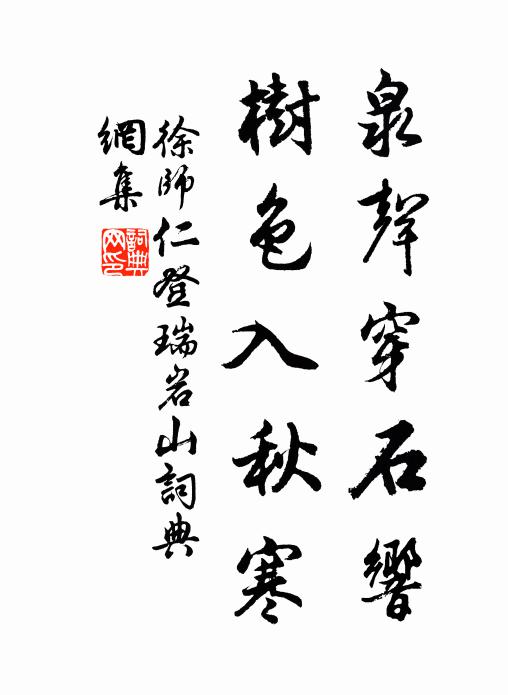 泉聲穿石響
樹色入秋寒
徐師仁登瑞岩山詞典
網集
詞典
网印